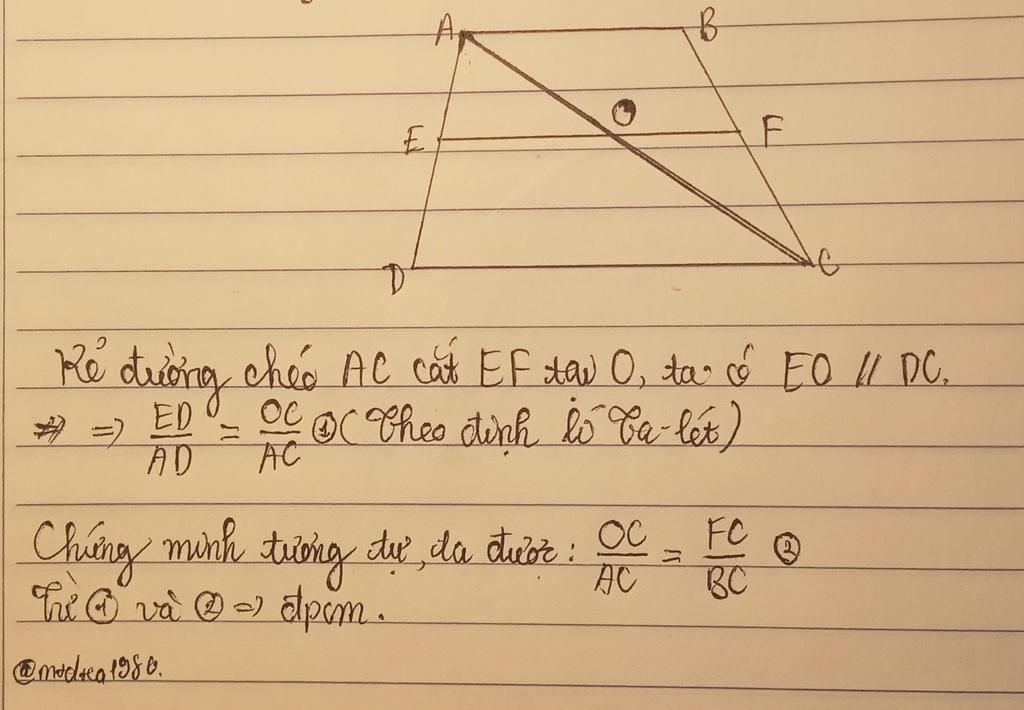 A B
O
E F
D C
Kẻ đường chéo AC cắt EF tại O, ta có EO // DC.
=> ED/AD = OC/AC ① (Theo định lí Ta-lét)
Chứng minh tương tự, ta được: OC/AC = FC/BC ②
Từ ① và ② => đpcm.